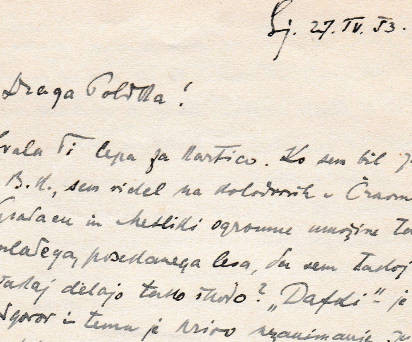 Lj. 27. IV. 53.
Draga Poldka!
hvala Ti lepa za kartico. Ko sem bil
B. K., sem videl na kolodvorih v Črnom
Gradacu in Metliki ogromne množine
mladega, posekanega lesa, da sem takoj
delajo tako škodo? „Dafki" je
odgovor in temu je krivo nezanimanje